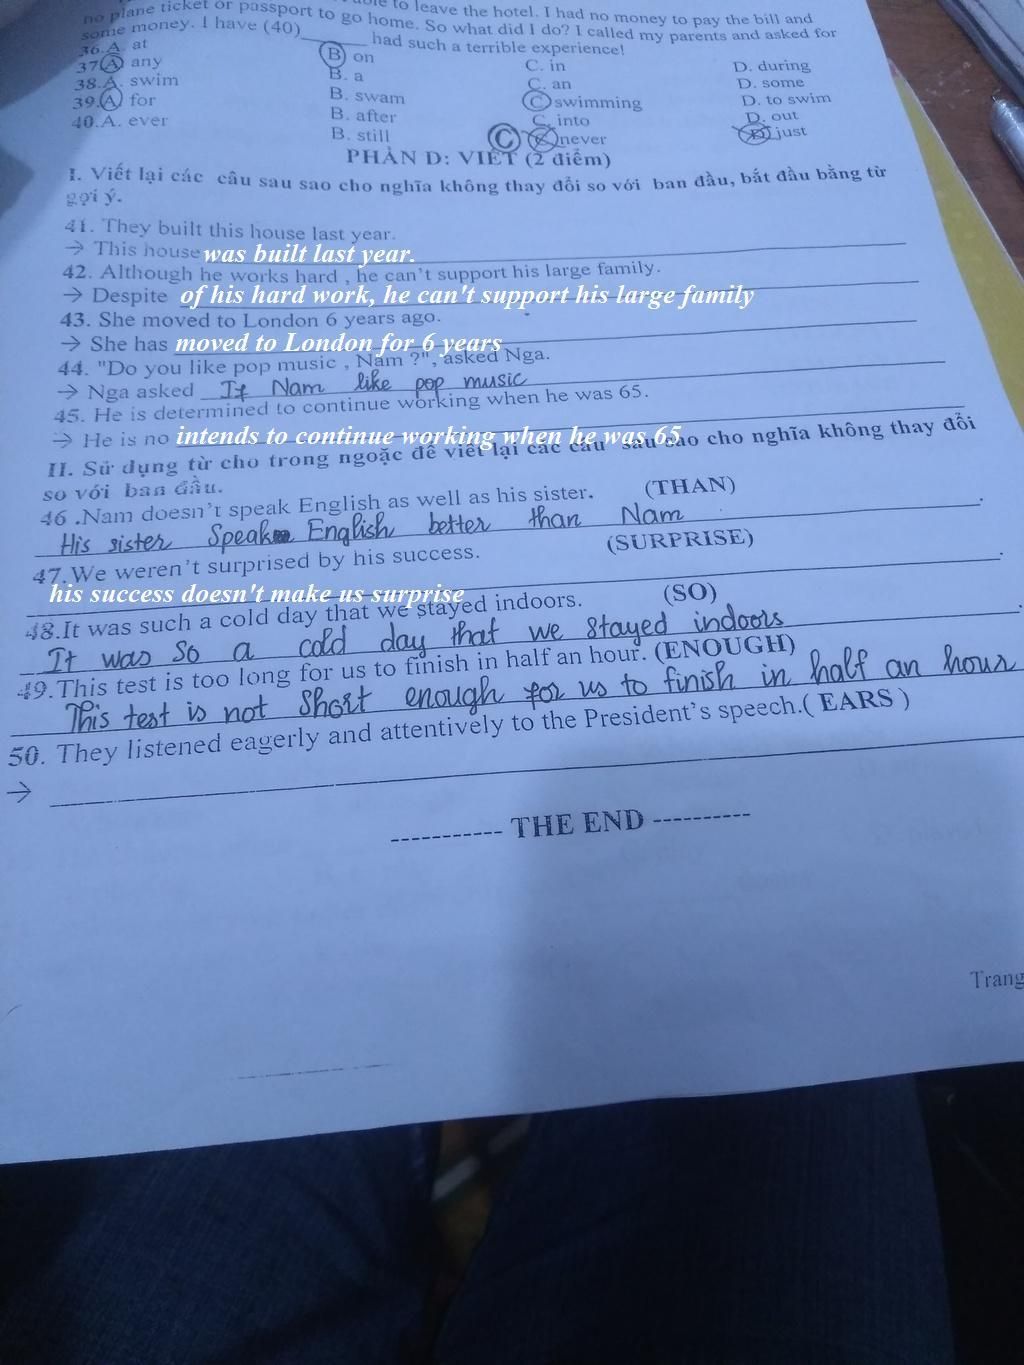 to leave the hotel. I had no money to pay the bill and
no plane ticket or passport to go home. So what did I do? I called my parents and asked for
some money. I have (40)______ had such a terrible experience!
36.A. at B on C. in D. during
37 A any B. a C. an D. some
38.A. swim B. swam C swimming D. to swim
39. A for B. after C. into D. out
40.A. ever B. still C C never D just
PHẦN D: VIẾT (2 điểm)
I. Viết lại các câu sau sao cho nghĩa không thay đổi so với ban đầu, bắt đầu bằng từ
gợi ý.
41. They built this house last year.
→ This house was built last year.
42. Although he works hard , he can't support his large family.
→ Despite of his hard work, he can't support his large family
43. She moved to London 6 years ago.
→ She has moved to London for 6 years
44. "Do you like pop music , Nam ?", asked Nga.
→ Nga asked If Nam like pop music
45. He is determined to continue working when he was 65.
→ He is no intends to continue working when he was 65
II. Sử dụng từ cho trong ngoặc để viết lại các câu sau sao cho nghĩa không thay đổi
so với ban đầu.
46 .Nam doesn't speak English as well as his sister. (THAN)
His sister Speak English better than Nam
47.We weren't surprised by his success. (SURPRISE)
his success doesn't make us surprise
48.It was such a cold day that we stayed indoors. (SO)
It was so a cold day that we stayed indoors
49.This test is too long for us to finish in half an hour. (ENOUGH)
This test is not Short enough for us to finish in half an hour
50. They listened eagerly and attentively to the President's speech.( EARS )
→
----------- THE END ----------
Trang